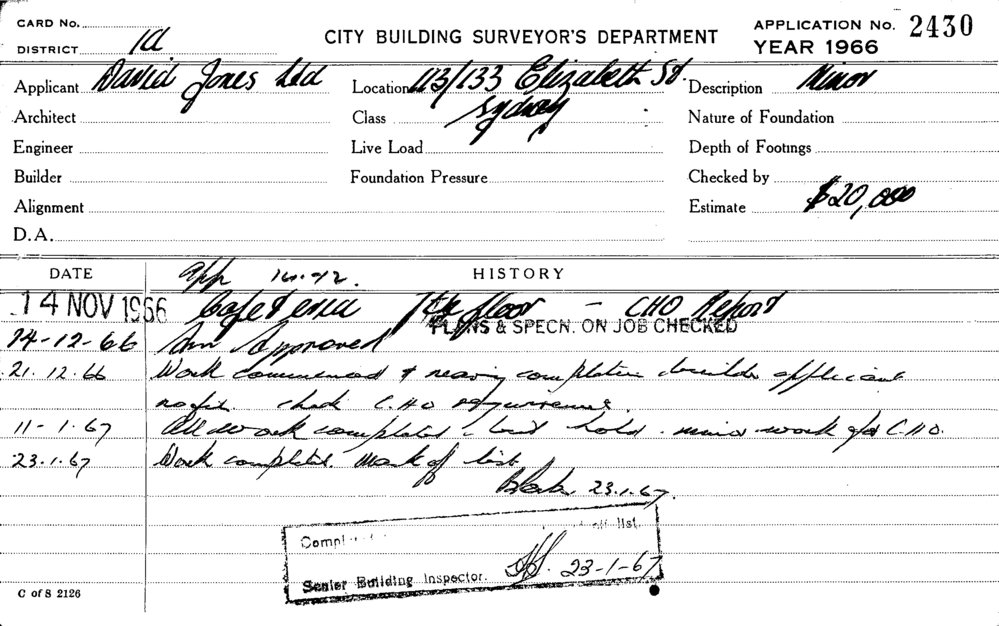 CARD No.
DISTRICT 1a
CITY BUILDING SURVEYOR'S DEPARTMENT
APPLICATION No. 2430
YEAR 1966
Applicant David Jones Ltd Location 113/133 Elizabeth St. Description Minor
Architect Class Sydney Nature of Foundation
Engineer Live Load Depth of Footings
Builder Foundation Pressure Checked by
Alignment Estimate $20,000
D.A.
DATE HISTORY
app
14 NOV 1966 Cafeteria 7th floor - CHO Report
PLANS & SPECN. ON JOB CHECKED
14-12-66 Approved
21.12.66 Work commenced & nearing completion builder applicant
notif. check C.HO requirements.
11-1.67 All work completed but hold. minor work C.HO.
23.1.67 Work completed. Mark off list
23.1.67.
off list
Senior Building Inspector. 23-1-67
C of S 2126